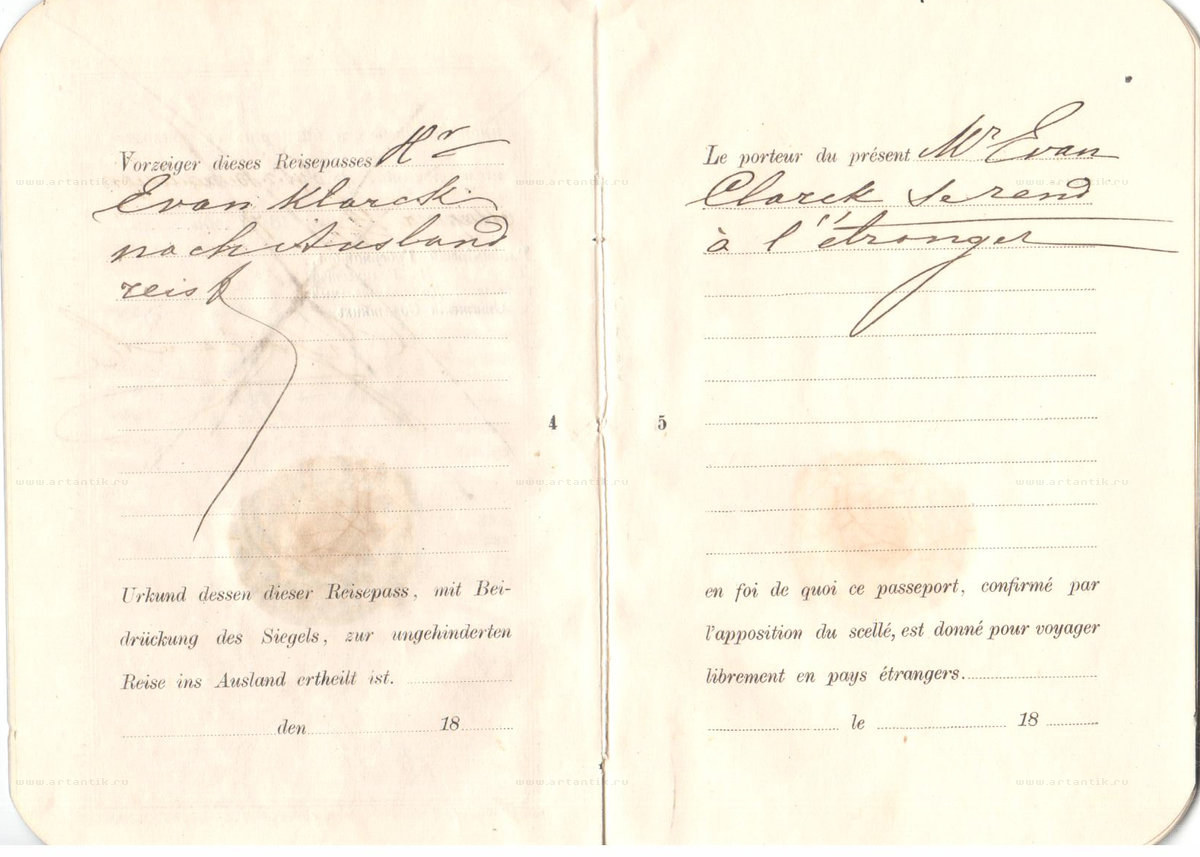 Vorzeiger dieses Reisepasses Hr
Evan Klarck
nach Ausland
reist
4
Urkund dessen dieser Reisepass, mit Bei-
drückung des Siegels, zur ungehinderten
Reise ins Ausland ertheilt ist.
den 18
Le porteur du présent Mr Evan
Clarck se rend
à l'étranger
5
en foi de quoi ce passeport, confirmé par
l'apposition du scellé, est donné pour voyager
librement en pays étrangers.
le 18
www.artantik.ru www.artantik.ru www.artantik.ru
www.artantik.ru www.artantik.ru www.artantik.ru
www.artantik.ru www.artantik.ru www.artantik.ru